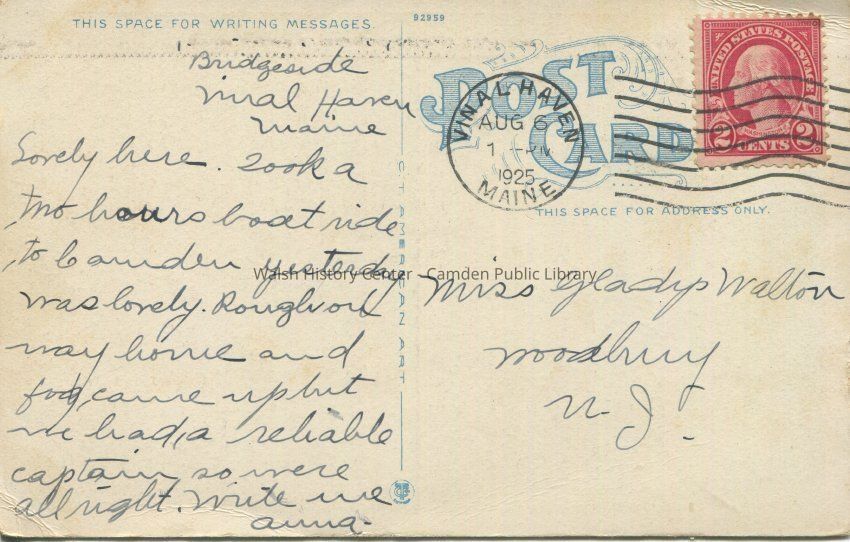 THIS SPACE FOR WRITING MESSAGES.
92959
Bridgeside
Vinal Haven
Maine
Lovely here. Took a
two hours boat ride
to Camden yesterday
was lovely. Rough on
way home and
fog came up but
we had a reliable
captain so were
all right. Write me
Anna-
C.T. AMERICAN ART
POST
CARD
VINAL HAVEN
AUG 6
1 - PM
1925
MAINE
UNITED STATES POSTAGE
WASHINGTON
2 CENTS 2
THIS SPACE FOR ADDRESS ONLY.
Miss Gladys Walton
Woodbury
N.J.
Walsh History Center - Camden Public Library